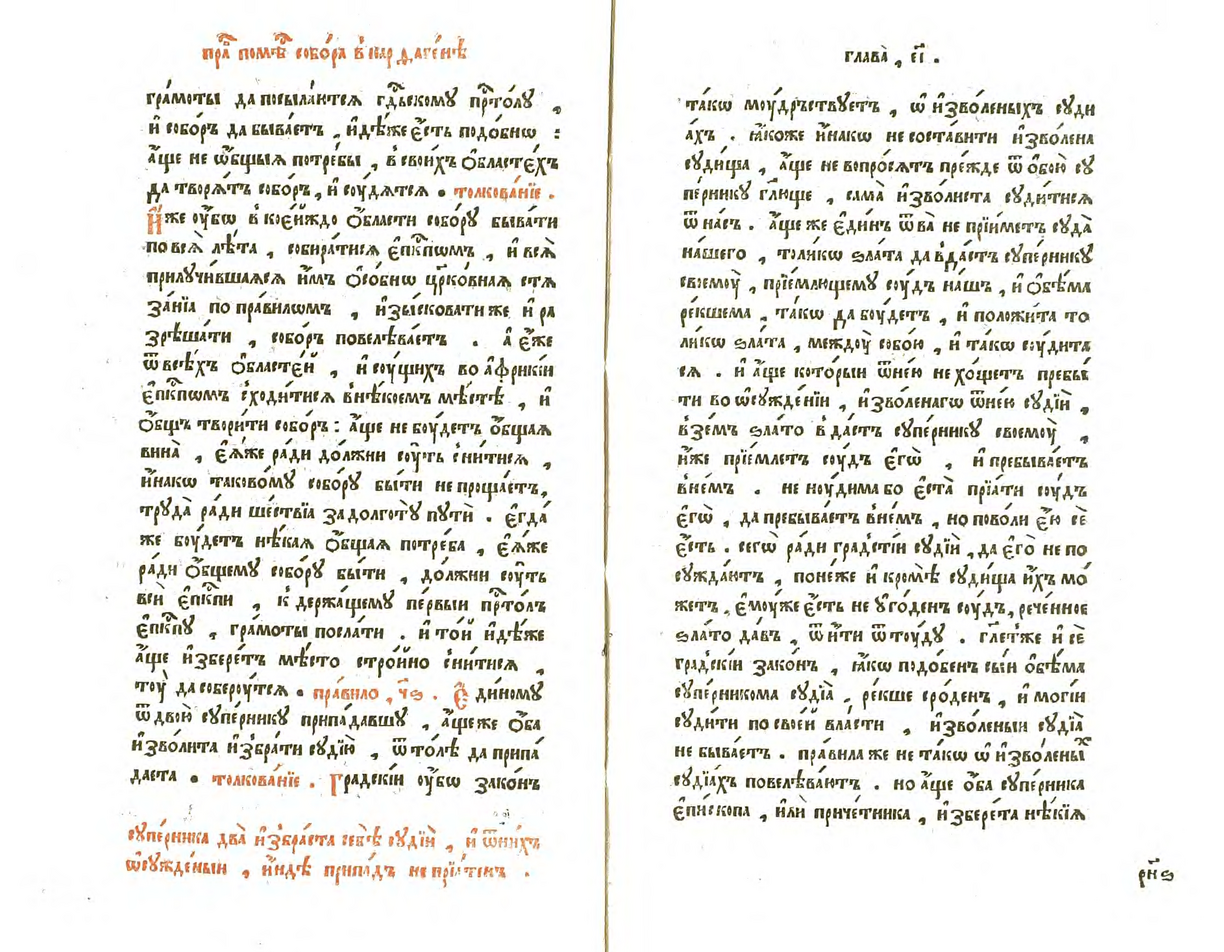 пра҇ пом҇ѣ собо́ра в̾ кар ѳаге́нѣ
гра́моты да посыла́ются гд҇ьскому пр҇то́лу ,
и҆ собо́ръ да быва́етъ , и҆дѣ́же є҆́сть подо́бнѡ :
а҆́ще не ѡ҆́бщыѧ потре́бы , в̾ свои́хъ ѻ҆бластє́хъ
да творѧ́тъ собо́ръ , и҆ соу́дѧтсѧ . толкова́нїе .
И҆́же оу҆́бѡ в̾ кое́йждо ѻ҆́бласти собо́ру быва́ти
по всѧ̀ лѣ́та , собира́тисѧ є҆пк҇пѡмъ , и҆ всѧ̀
прилучи́вшаѧсѧ и҆̀мъ ѻ҆со́бнѡ цр҇ко́внаѧ стѧ
за́нїѧ по пра́вилѡмъ , и҆зы́сковати же и҆ ра
зрѣша́ти , собо́ръ повелѣва́етъ . а҆ є҆́же
ѿ всѣ́хъ ѻ҆бласте́й , и҆ соу́щихъ во а҆́фрикїи
є҆пк҇пѡмъ сходи́тисѧ в̾нѣ́коемъ мѣ́стѣ , и҆
ѻ҆́бщъ твори́ти собо́ръ : а҆́ще не боу́детъ ѻ҆́бщаѧ
вина̀ , є҆ѧ́же ра́ди до́лжни соу́ть сни́тисѧ ,
и҆́накѡ таково́му собо́ру бы́ти не проща́етъ ,
труда̀ ра́ди ше́ствїѧ за долготꙋ̀ пути̑ . є҆гда́
же боу́детъ нѣ́каѧ ѻ҆́бщаѧ потре́ба , є҆ѧ́же
ра́ди ѻ҆́бщему собо́ру бы́ти , до́лжни соу́ть
всѝ є҆пк҇пи , к̾ держа́щему пе́рвыи пр҇то́лъ
є҆пк҇пу , гра́моты посла́ти . и҆ то́й и҆дѣ́же
а҆́ще и҆збере́тъ мѣ́сто стро́йно сни́тисѧ ,
тоу̀ да собероу́тсѧ . пра́вило , ч҃ѕ . Е҆ди́ному
ѿ двою̀ супе́рнику припа́давшу , а҆́ще же ѻ҆́ба
и҆зво́лита и҆збра́ти судїю̀ , ѿто́лѣ да припа́
даета . толкова́нїе . Гра́дскїи оу҆́бѡ зако́нъ
супе́рника два̀ и҆збра́ста себѣ̀ судїѝ , и҆ ѿни́хъ
ѡ҆сужде́ныи , и҆́ндѣ припа́дъ не прїѧ́тенъ .
глава̀ , є҃і .
та́кѡ моу́дръствуетъ , ѡ҆ и҆зво́леныхъ суди
а́хъ . ꙗ҆́коже и҆́накѡ не соста́вити и҆зво́лена
суди́ща , а҆́ще не вопро́сѧтъ пре́жде ѿ ѻ҆бою̀ су
пе́рнику гл҃юще , сама̀ и҆зво́листа суди́тисѧ
ѿ на́съ . а҆́ще же є҆ди́нъ ѿ ва̀ не прїи́метъ суда̀
на́шего , толи́кѡ ѕла́та да в̾да́стъ супе́рнику
своемоу̀ , прїе́млющему соу́дъ на́шъ , и҆ ѻ҆бѣ́ма
ре́кшема , та́кѡ да боу́детъ , и҆ положи́та то
ли́кѡ ѕла́та , междоу̀ собо́ю , и҆ та́кѡ соу́дита
сѧ . и҆ а҆́ще кото́рыи ѿ нею̀ не хо́щетъ пребы́
ти во ѡ҆сужде́нїи , и҆зво́ленагѡ ѿ нею̀ судїѝ ,
в̾зе́мъ ѕла́то в̾да́стъ супе́рнику своемоу̀ ,
и҆́же прїе́млетъ соу́дъ є҆гѡ̀ , и҆ пребыва́етъ
в̾не́мъ . не ноу́дима бо є҆ста̀ прїѧ́ти соу́дъ
є҆гѡ̀ , да пребыва́етъ в̾не́мъ , но по во́ли є҆ю̀ се́
є҆́сть . сегѡ̀ ра́ди гра́дстїи судїѝ , да є҆го̀ не по
сужда́ютъ , поне́же и҆ кромѣ̀ суди́ща и҆́хъ мо́
жетъ , є҆моу́же є҆́сть не ᲂуго́денъ соу́дъ , рече́нное
ѕла́то да́въ , ѿи́ти ѿтоу́ду . гл҃етже и҆ сѐ
гра́дскїи зако́нъ , ꙗ҆́кѡ подо́бенъ сы́и ѻ҆бѣ́ма
супе́рникома судїѧ̀ , ре́кше сро́денъ , и҆ могі́и
суди́ти по свое́й вла́сти , и҆зво́леныи судїѧ̀
не быва́етъ . пра́вила же не та́кѡ ѡ҆ и҆зво́лены҇х
судїа́хъ повелѣва́ютъ . но а҆́ще ѻ҆́ба супе́рника
є҆пи́скопа , и҆лѝ приче́тника , и҆збере́та нѣ́кїѧ
рн҃ѕ